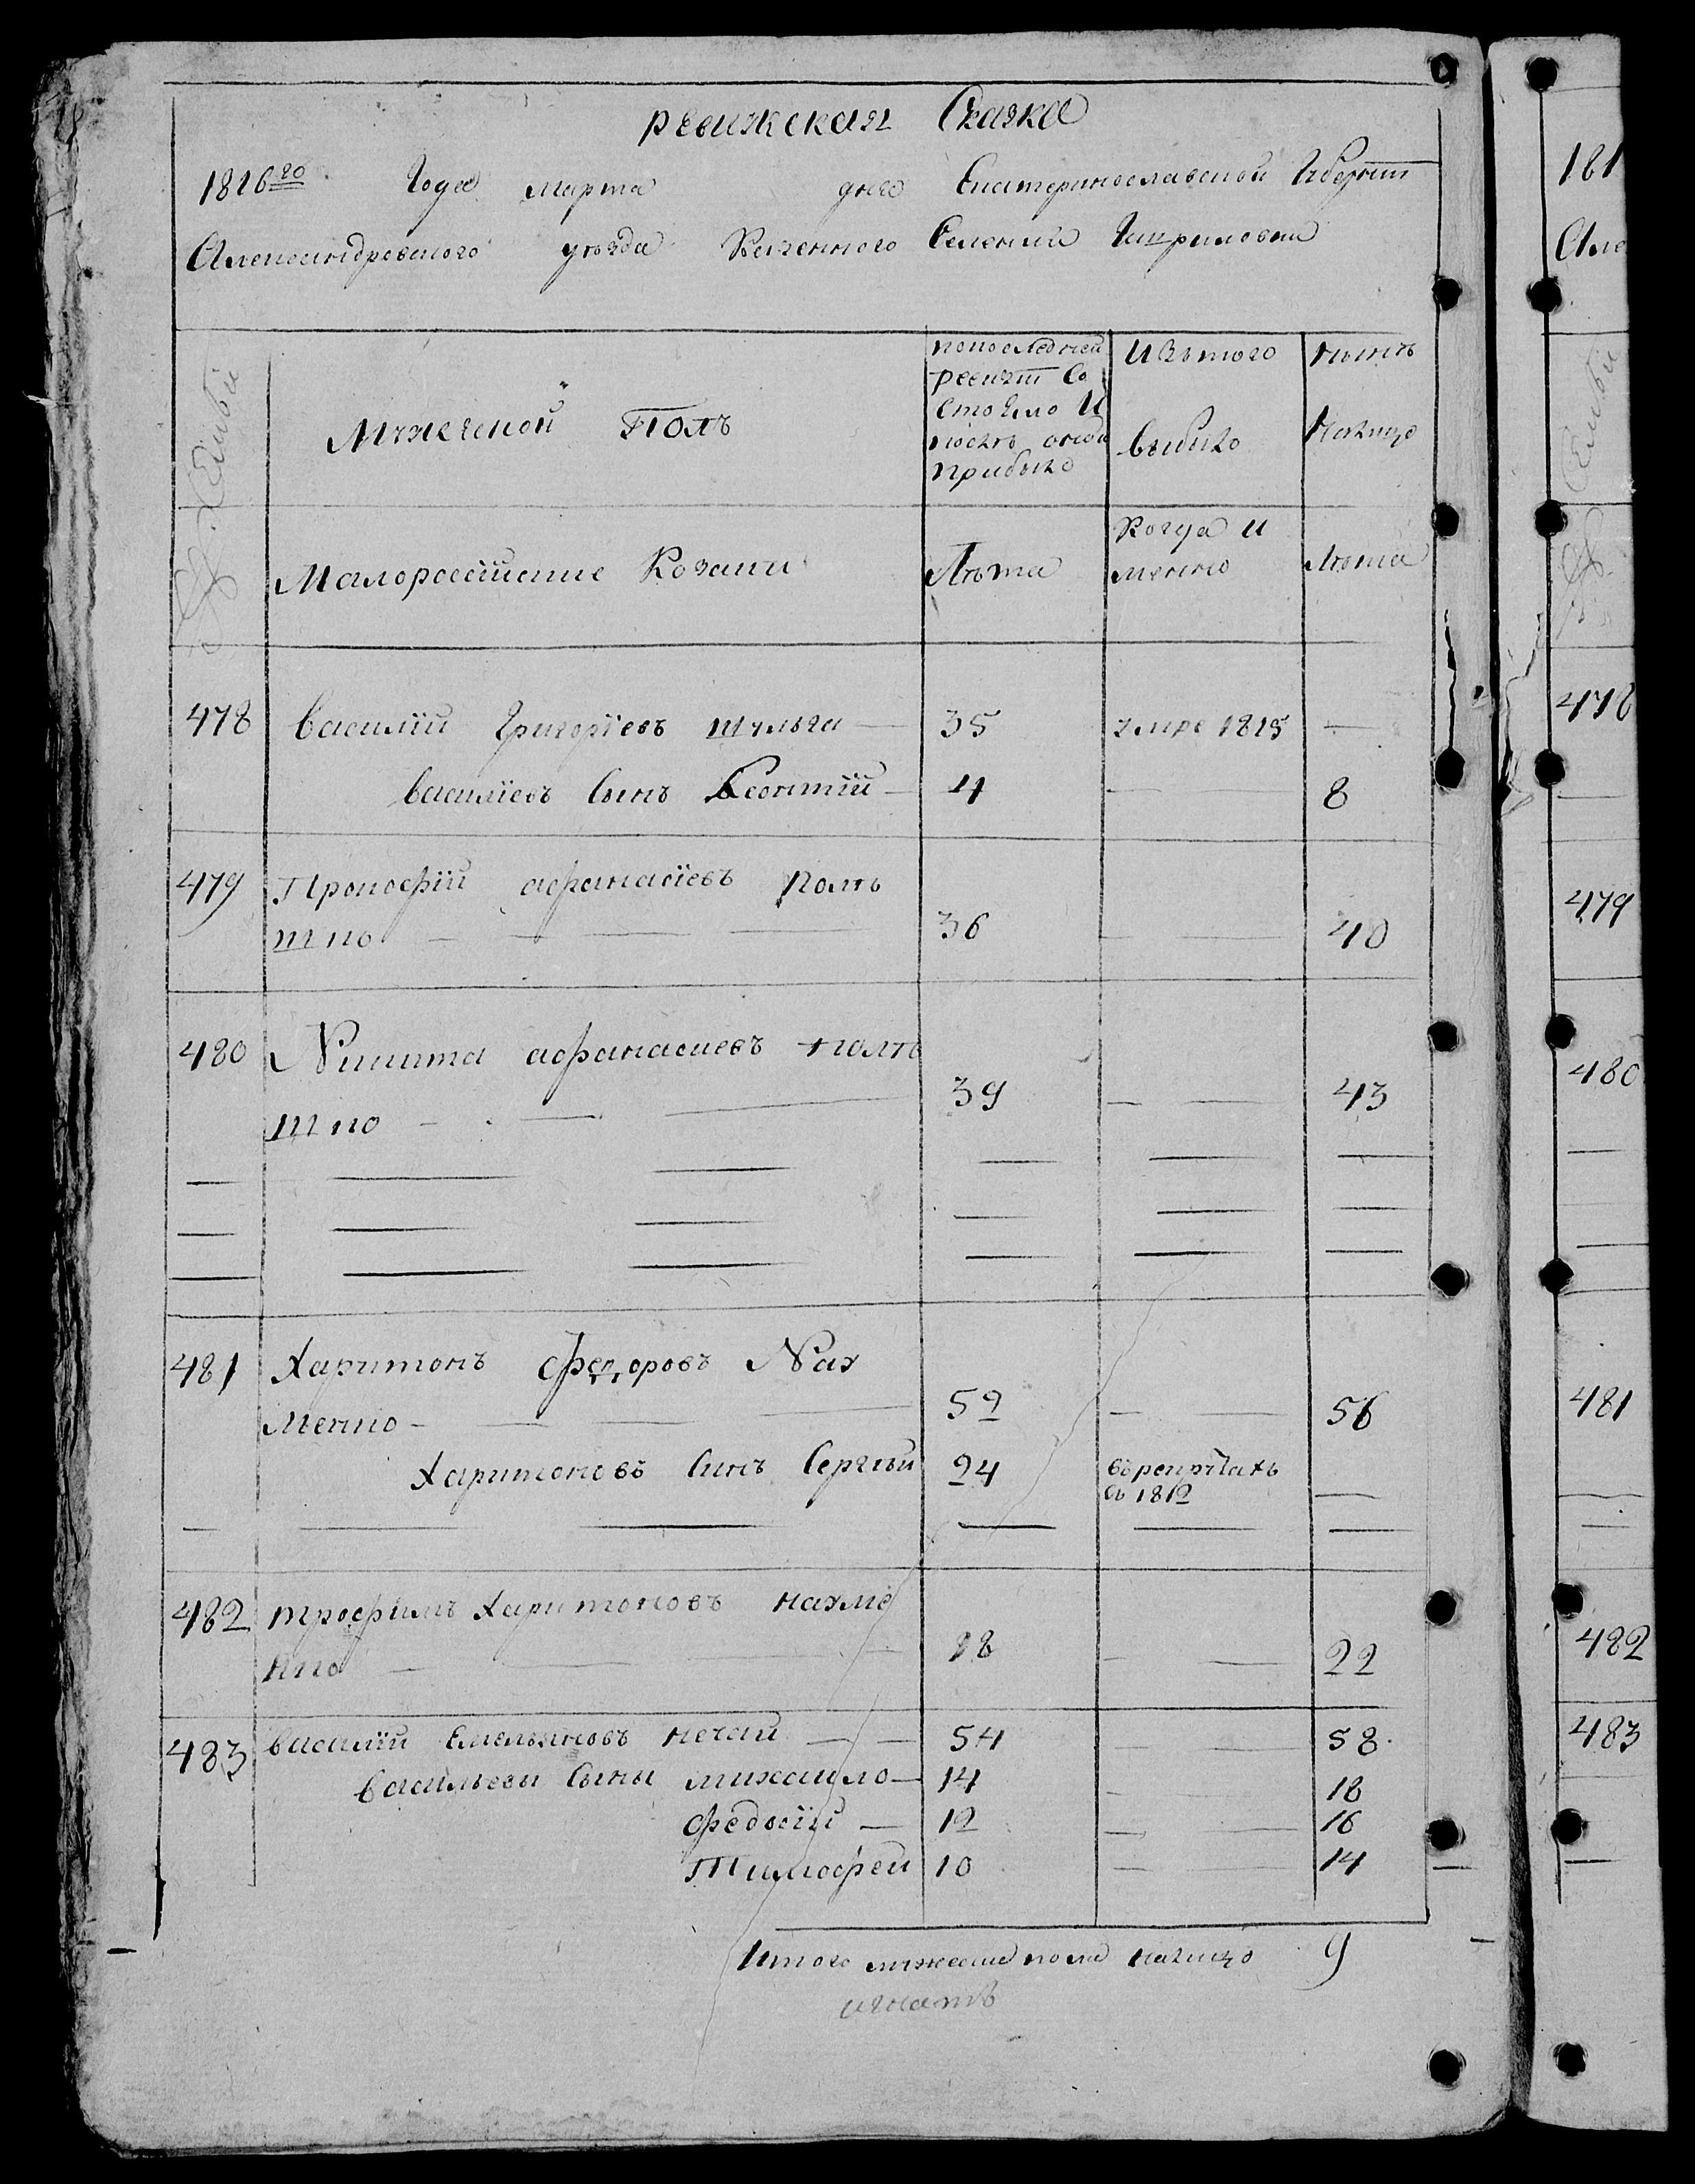 ревижская Сказка
1816го Года марта дня Екатеринославской Губернии
Александровского уѣзда Казенного Селения Гавриловки
Мужеской Полъ
попоследней ревизии Состояло И послѣ оной прибыло
Изътого выбыло
нынѣ налицо
Малороссійские Козаки
Лѣта
Когда И менно
Лѣта
478 Василій Григоріевъ шульга — 35 умре 1815 —
Василіевъ Сынъ Леонтій — 4 — 8
479 Прокофій афанасіевъ Полт
шко — 36 — 40
480 Никита афанасиевъ полт
шко — 39 — 43
481 Харитонъ федоровъ Нах
менко — 52 — 56
Харитоновъ Синъ Сергѣй 24 врекрутахъ
съ 1812 —
482 трофимъ Харитоновъ нахме
нко — 18 — 22
483 василій Емельяновъ нечай — 54 — 58
васильевы Сыны михайло — 14 — 18
Федосій — 12 — 16
Тимофей 10 — 14
Итого мужеска пола налицо 9
181
Але
478
479
480
481
482
483